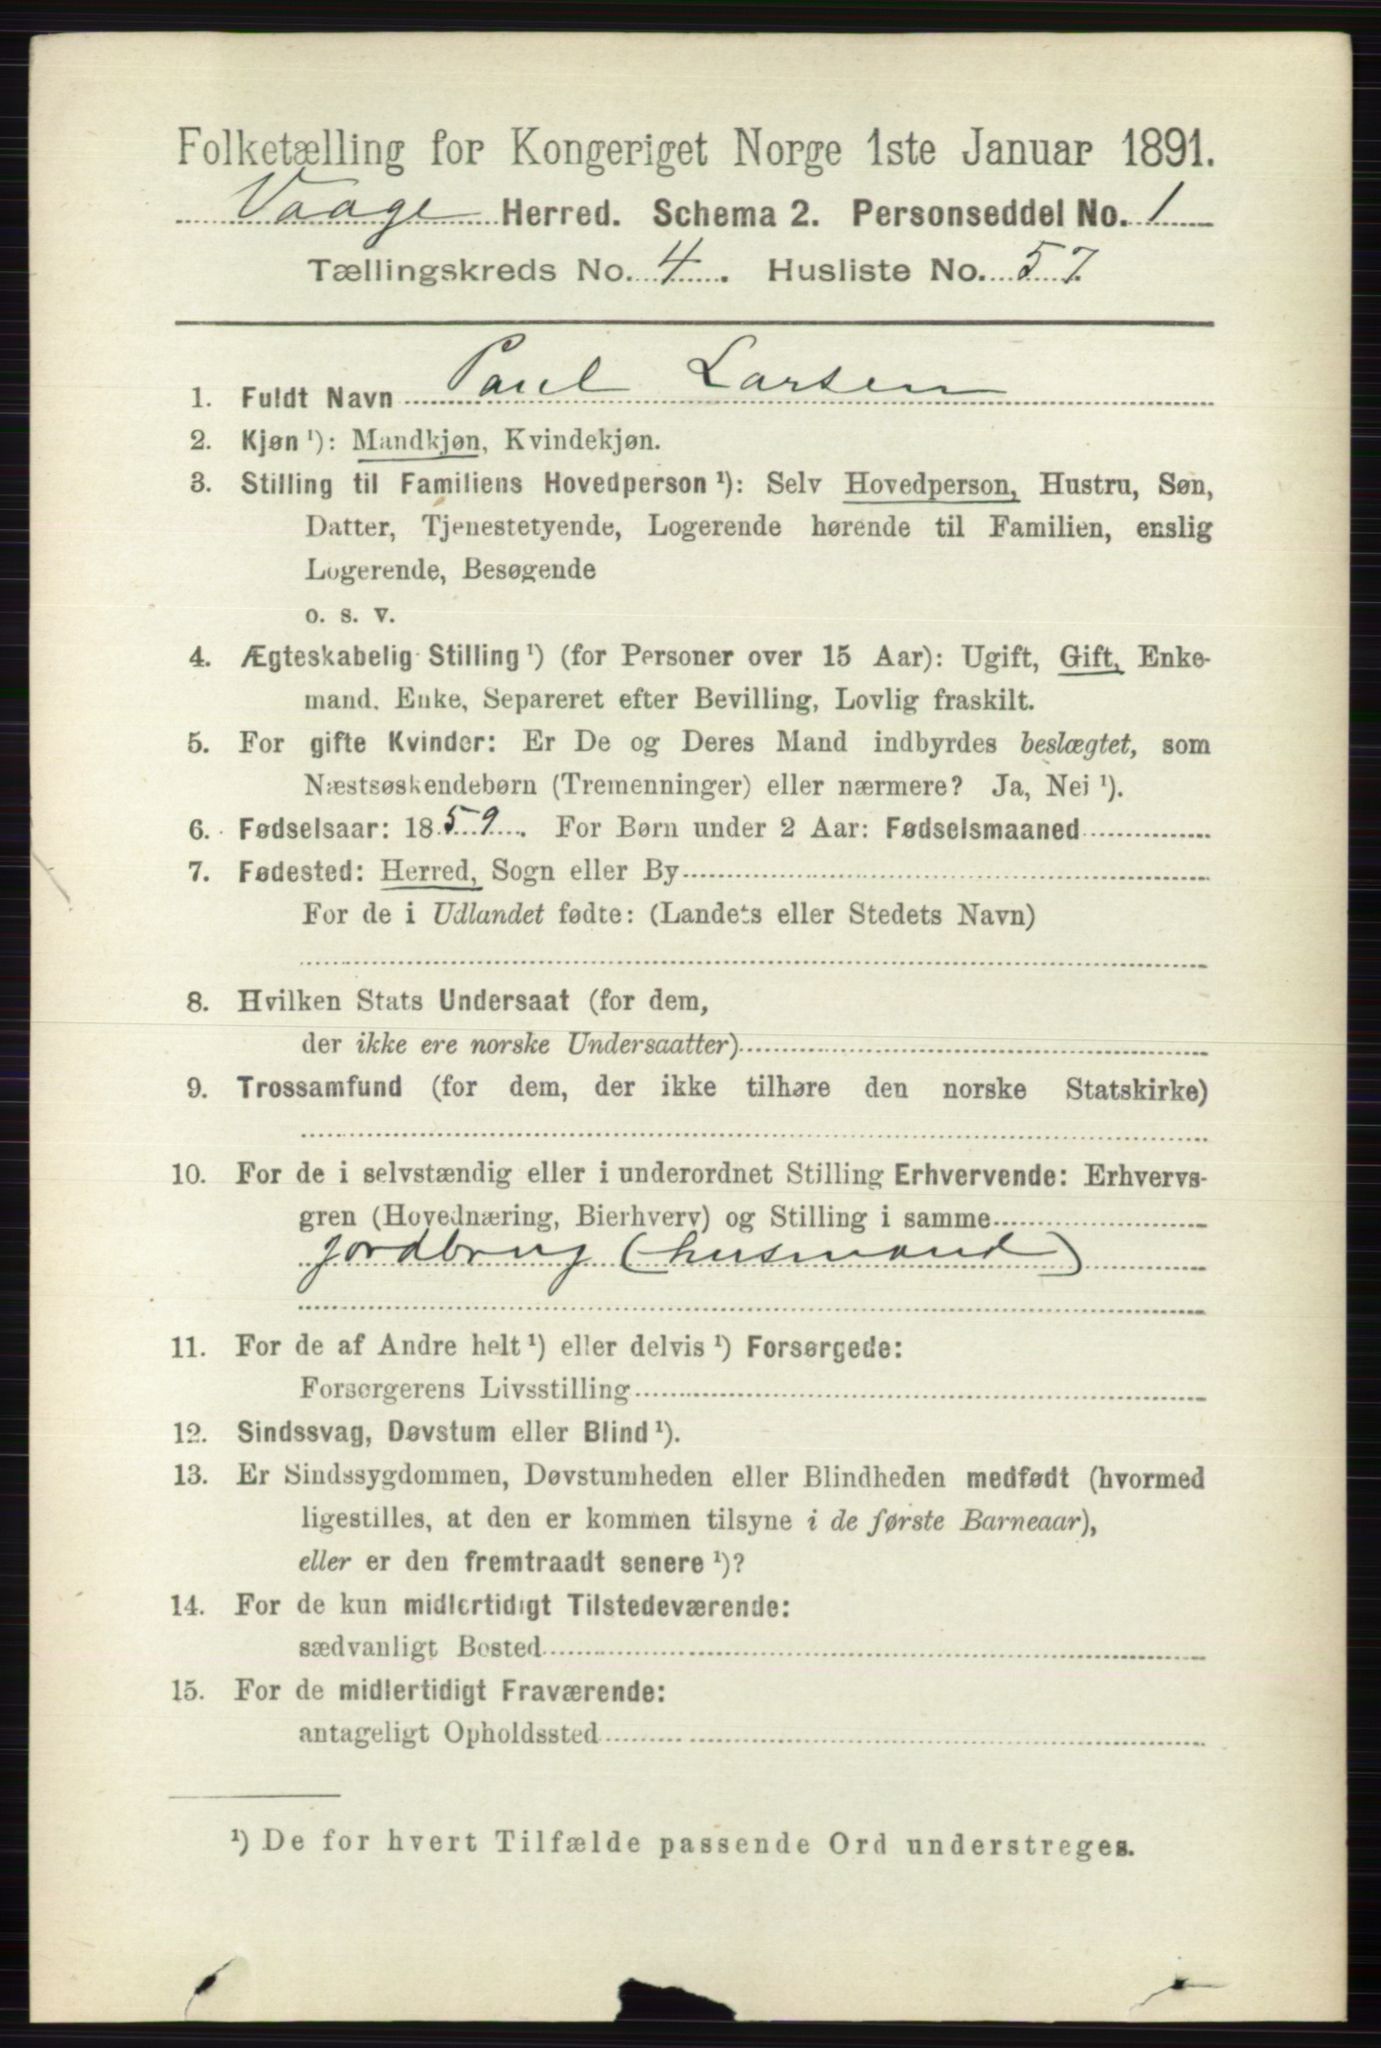 Folketælling for Kongeriget Norge 1ste Januar 1891.
Vaage Herred. Schema 2. Personseddel No. 1
Tællingskreds No. 4. Husliste No. 57.
1. Fuldt Navn Paul Larsen
2. Kjøn ¹): Mandkjøn, Kvindekjøn.
3. Stilling til Familiens Hovedperson ¹): Selv Hovedperson, Hustru, Søn,
Datter, Tjenestetyende, Logerende hørende til Familien, enslig
Logerende, Besøgende
o. s. v.
4. Ægteskabelig Stilling ¹) (for Personer over 15 Aar): Ugift, Gift, Enke-
mand, Enke, Separeret efter Bevilling, Lovlig fraskilt.
5. For gifte Kvinder: Er De og Deres Mand indbyrdes beslægtet, som
Næstsøskendebørn (Tremenninger) eller nærmere? Ja, Nei ¹).
6. Fødselsaar: 1859. For Børn under 2 Aar: Fødselsmaaned
7. Fødested: Herred, Sogn eller By
For de i Udlandet fødte: (Landets eller Stedets Navn)
8. Hvilken Stats Undersaat (for dem,
der ikke ere norske Undersaatter)
9. Trossamfund (for dem, der ikke tilhøre den norske Statskirke)
10. For de i selvstændig eller i underordnet Stilling Erhvervende: Erhvervs-
gren (Hovednæring, Bierhverv) og Stilling i samme
jordbrug (husmand)
11. For de af Andre helt ¹) eller delvis ¹) Forsørgede:
Forsørgerens Livsstilling
12. Sindssvag, Døvstum eller Blind ¹).
13. Er Sindssygdommen, Døvstumheden eller Blindheden medfødt (hvormed
ligestilles, at den er kommen tilsyne i de første Barneaar),
eller er den fremtraadt senere ¹)?
14. For de kun midlertidigt Tilstedeværende:
sædvanligt Bosted
15. For de midlertidigt Fraværende:
antageligt Opholdssted
¹) De for hvert Tilfælde passende Ord understreges.